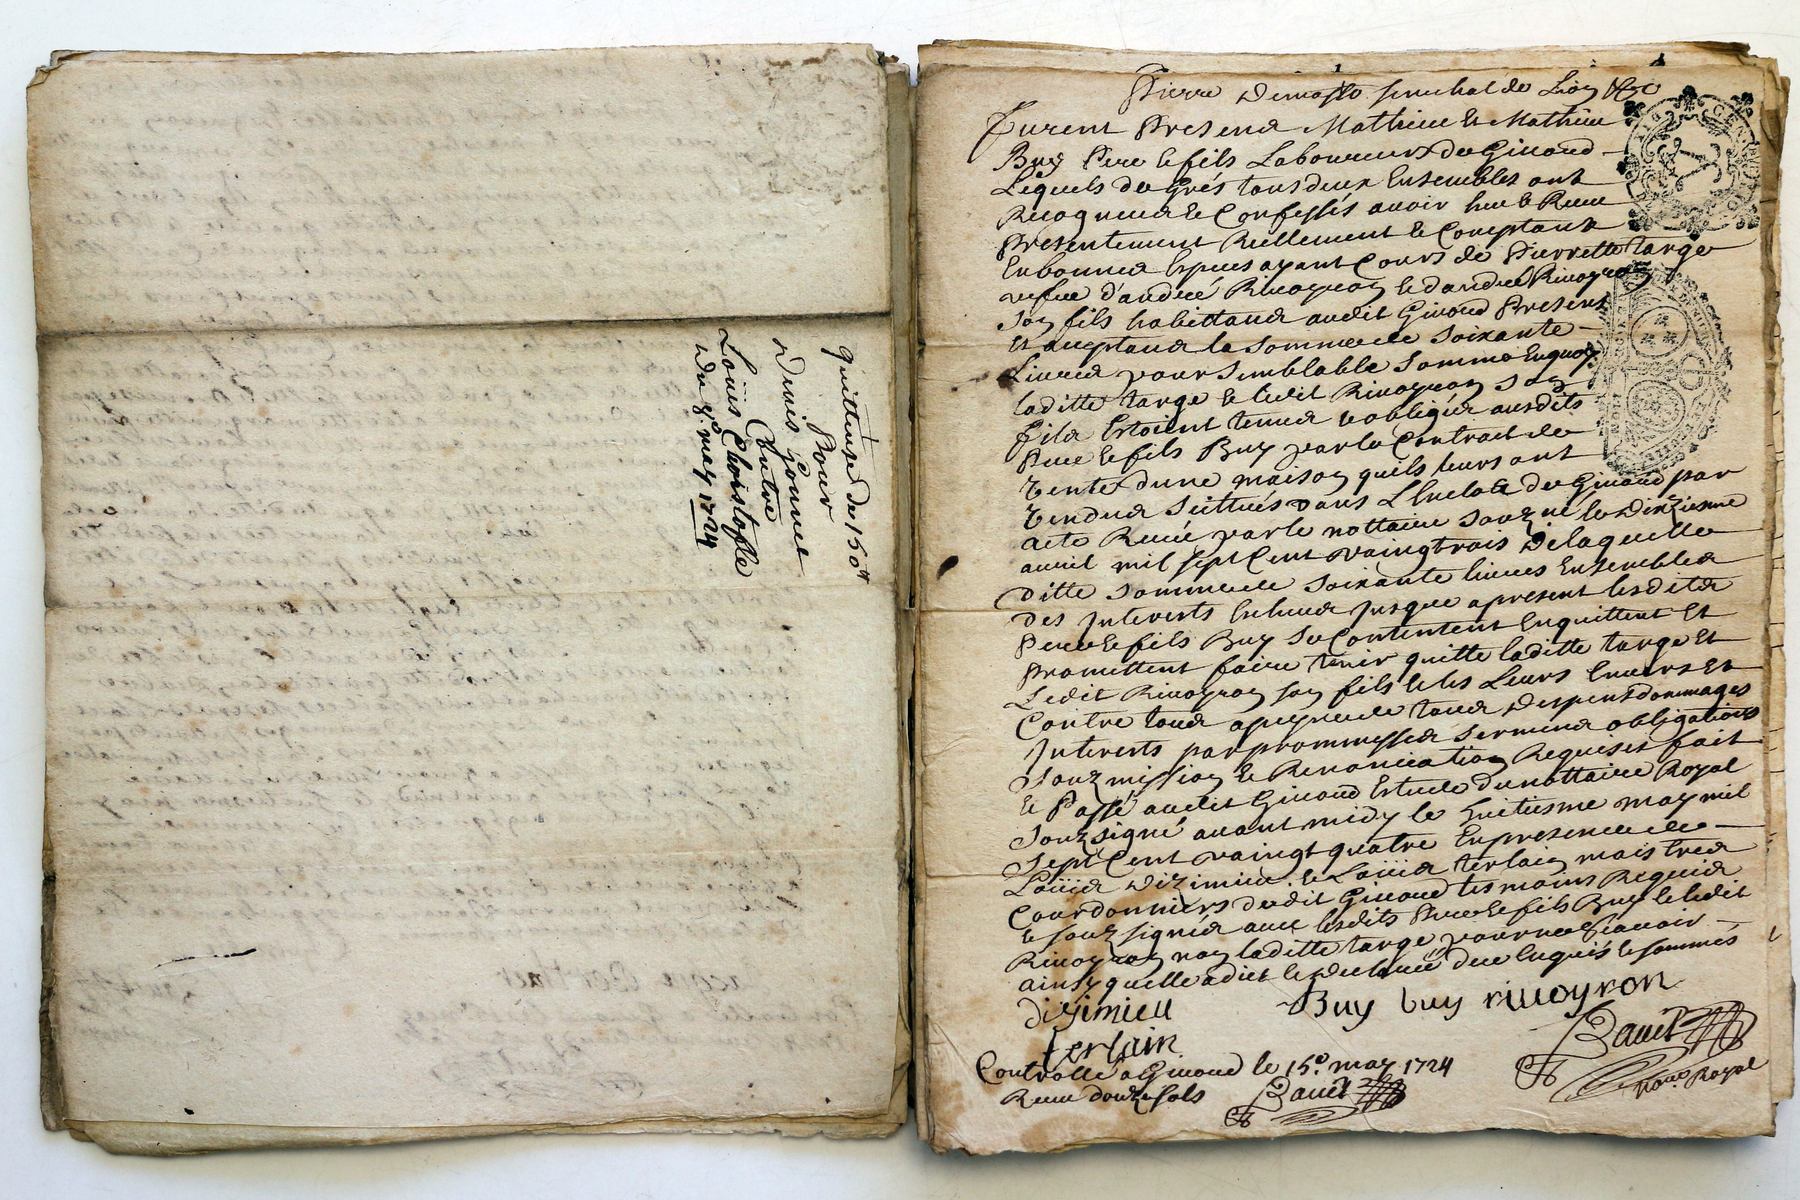 quittense de 150ᵗᵗ
Pour
Denis Gonnet
Contre
Louis Christofle
du 8ᵉ. may 1724
Pierre de senechal de Lion
furent Presens Mathieu Et Mathieu
Buy Pere et fils Laboureurs de Givord
Lesquels de Grés tous deux Ensembles ont
Recogneus et Confessés avoir heu et Receu
Presentement Reellement et Comptant
En bonnes Especes ayant Cours de Pierrette targe
vefve d'andré Rivoyron et d'andré Rivoyron
son fils habittans audit Givord Presens
Et aceptans la somme de soixante
Livres pour semblable somme En quoy
laditte targe et ledit Rivoyron son
fils Estoient tenus et obligés ausdits
Pere et fils Buy par le Contract de
Vente d'une maison quils leurs ont
Vendue scittuée dans L'Enclos de Givord par
acte Receu par le nottaire souzné le dixiesme
avril mil sept Cent vaingt trois de laquelle
ditte somme de soixante livres Ensembles
des Interests Escheus Jusque apresent lesdits
Pere et fils Buy se Contentent En quittent Et
Promettent faire tenir quitte laditte targe Et
Ledit Rivoyron son fils et les Leurs Envers Et
Contre tous apeyne de tous despens dommages
Interests par prommesses serments obligations
Souzmission et Renonciation Requises fait
et Passé audit Givord Estude du nottaire Royal
Souzsigné avant midy le huitiesme may mil
Sept Cent vaingt quatre En presence de
Loüis dizimieu et Loüis terlain maistres
Courdonniers dudit Givord tesmoins Requis
et souzsignés avec lesdits Pere et fils Buy et ledit
Rivoyron non laditte targe pour ne sçavoir
ainsy quelle a dict et declaré de ce Enquis et sommés
dizimieu Buy buy rivoyron
terlain
Bauet
Controllé a Givord le 15ᵉ. may 1724
Receu douze sols
Bauet
noᵗᵉ Royal